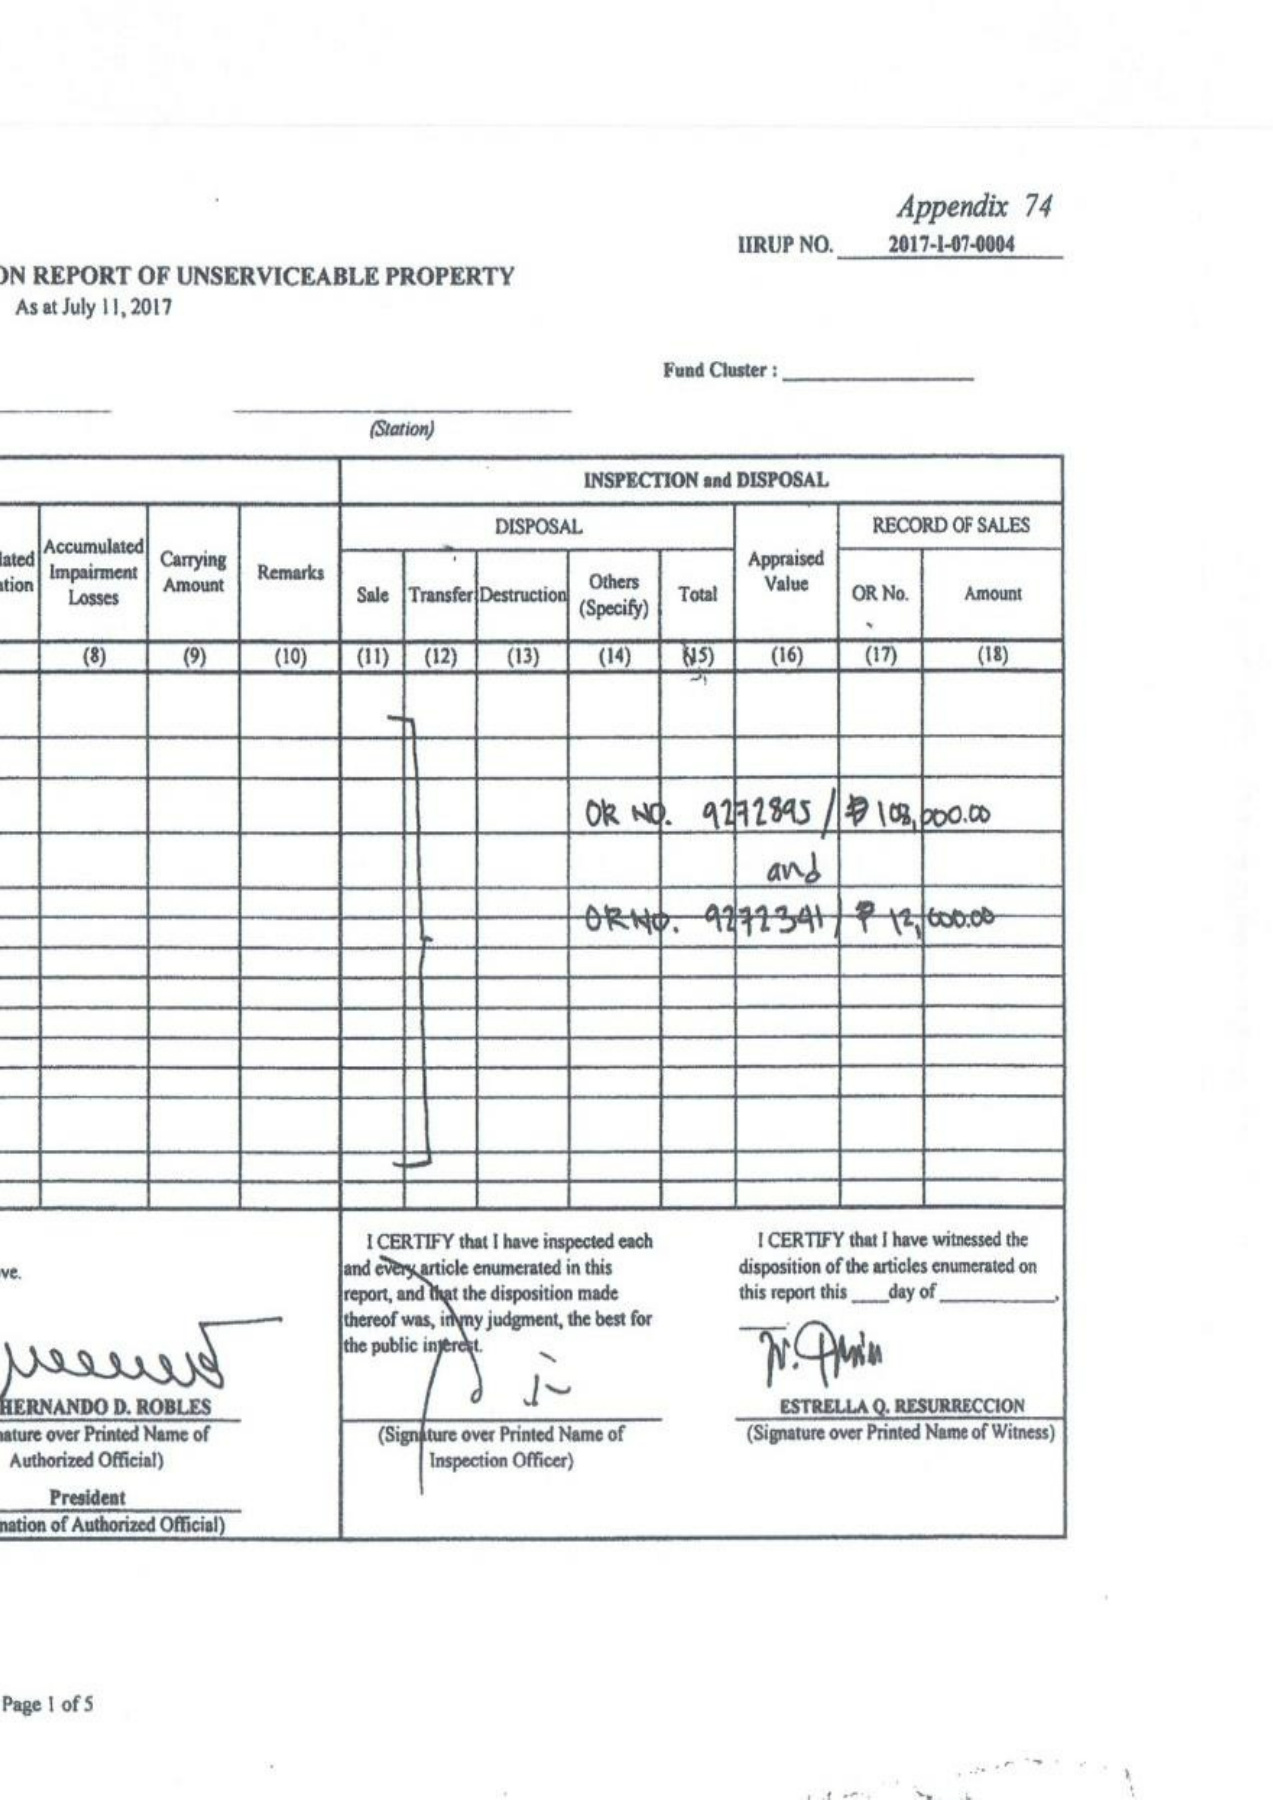 Appendix 74
IIRUP NO. 2017-I-07-0004
ON REPORT OF UNSERVICEABLE PROPERTY
As at July 11, 2017
Fund Cluster :
(Station)
INSPECTION and DISPOSAL
DISPOSAL
RECORD OF SALES
lated
ation
Accumulated
Impairment
Losses
Carrying
Amount
Remarks
Sale
Transfer
Destruction
Others
(Specify)
Total
Appraised
Value
OR No.
Amount
(8) (9) (10) (11) (12) (13) (14) (15) (16) (17) (18)
OR NO. 9272895 / ₱ 108,000.00
and
OR NO. 9272341 / ₱ 12,000.00
ve.
HERNANDO D. ROBLES
nature over Printed Name of
Authorized Official)
President
nation of Authorized Official)
I CERTIFY that I have inspected each
and every article enumerated in this
report, and that the disposition made
thereof was, in my judgment, the best for
the public interest.
(Signature over Printed Name of
Inspection Officer)
I CERTIFY that I have witnessed the
disposition of the articles enumerated on
this report this ____day of ____________.
ESTRELLA Q. RESURRECCION
(Signature over Printed Name of Witness)
Page 1 of 5